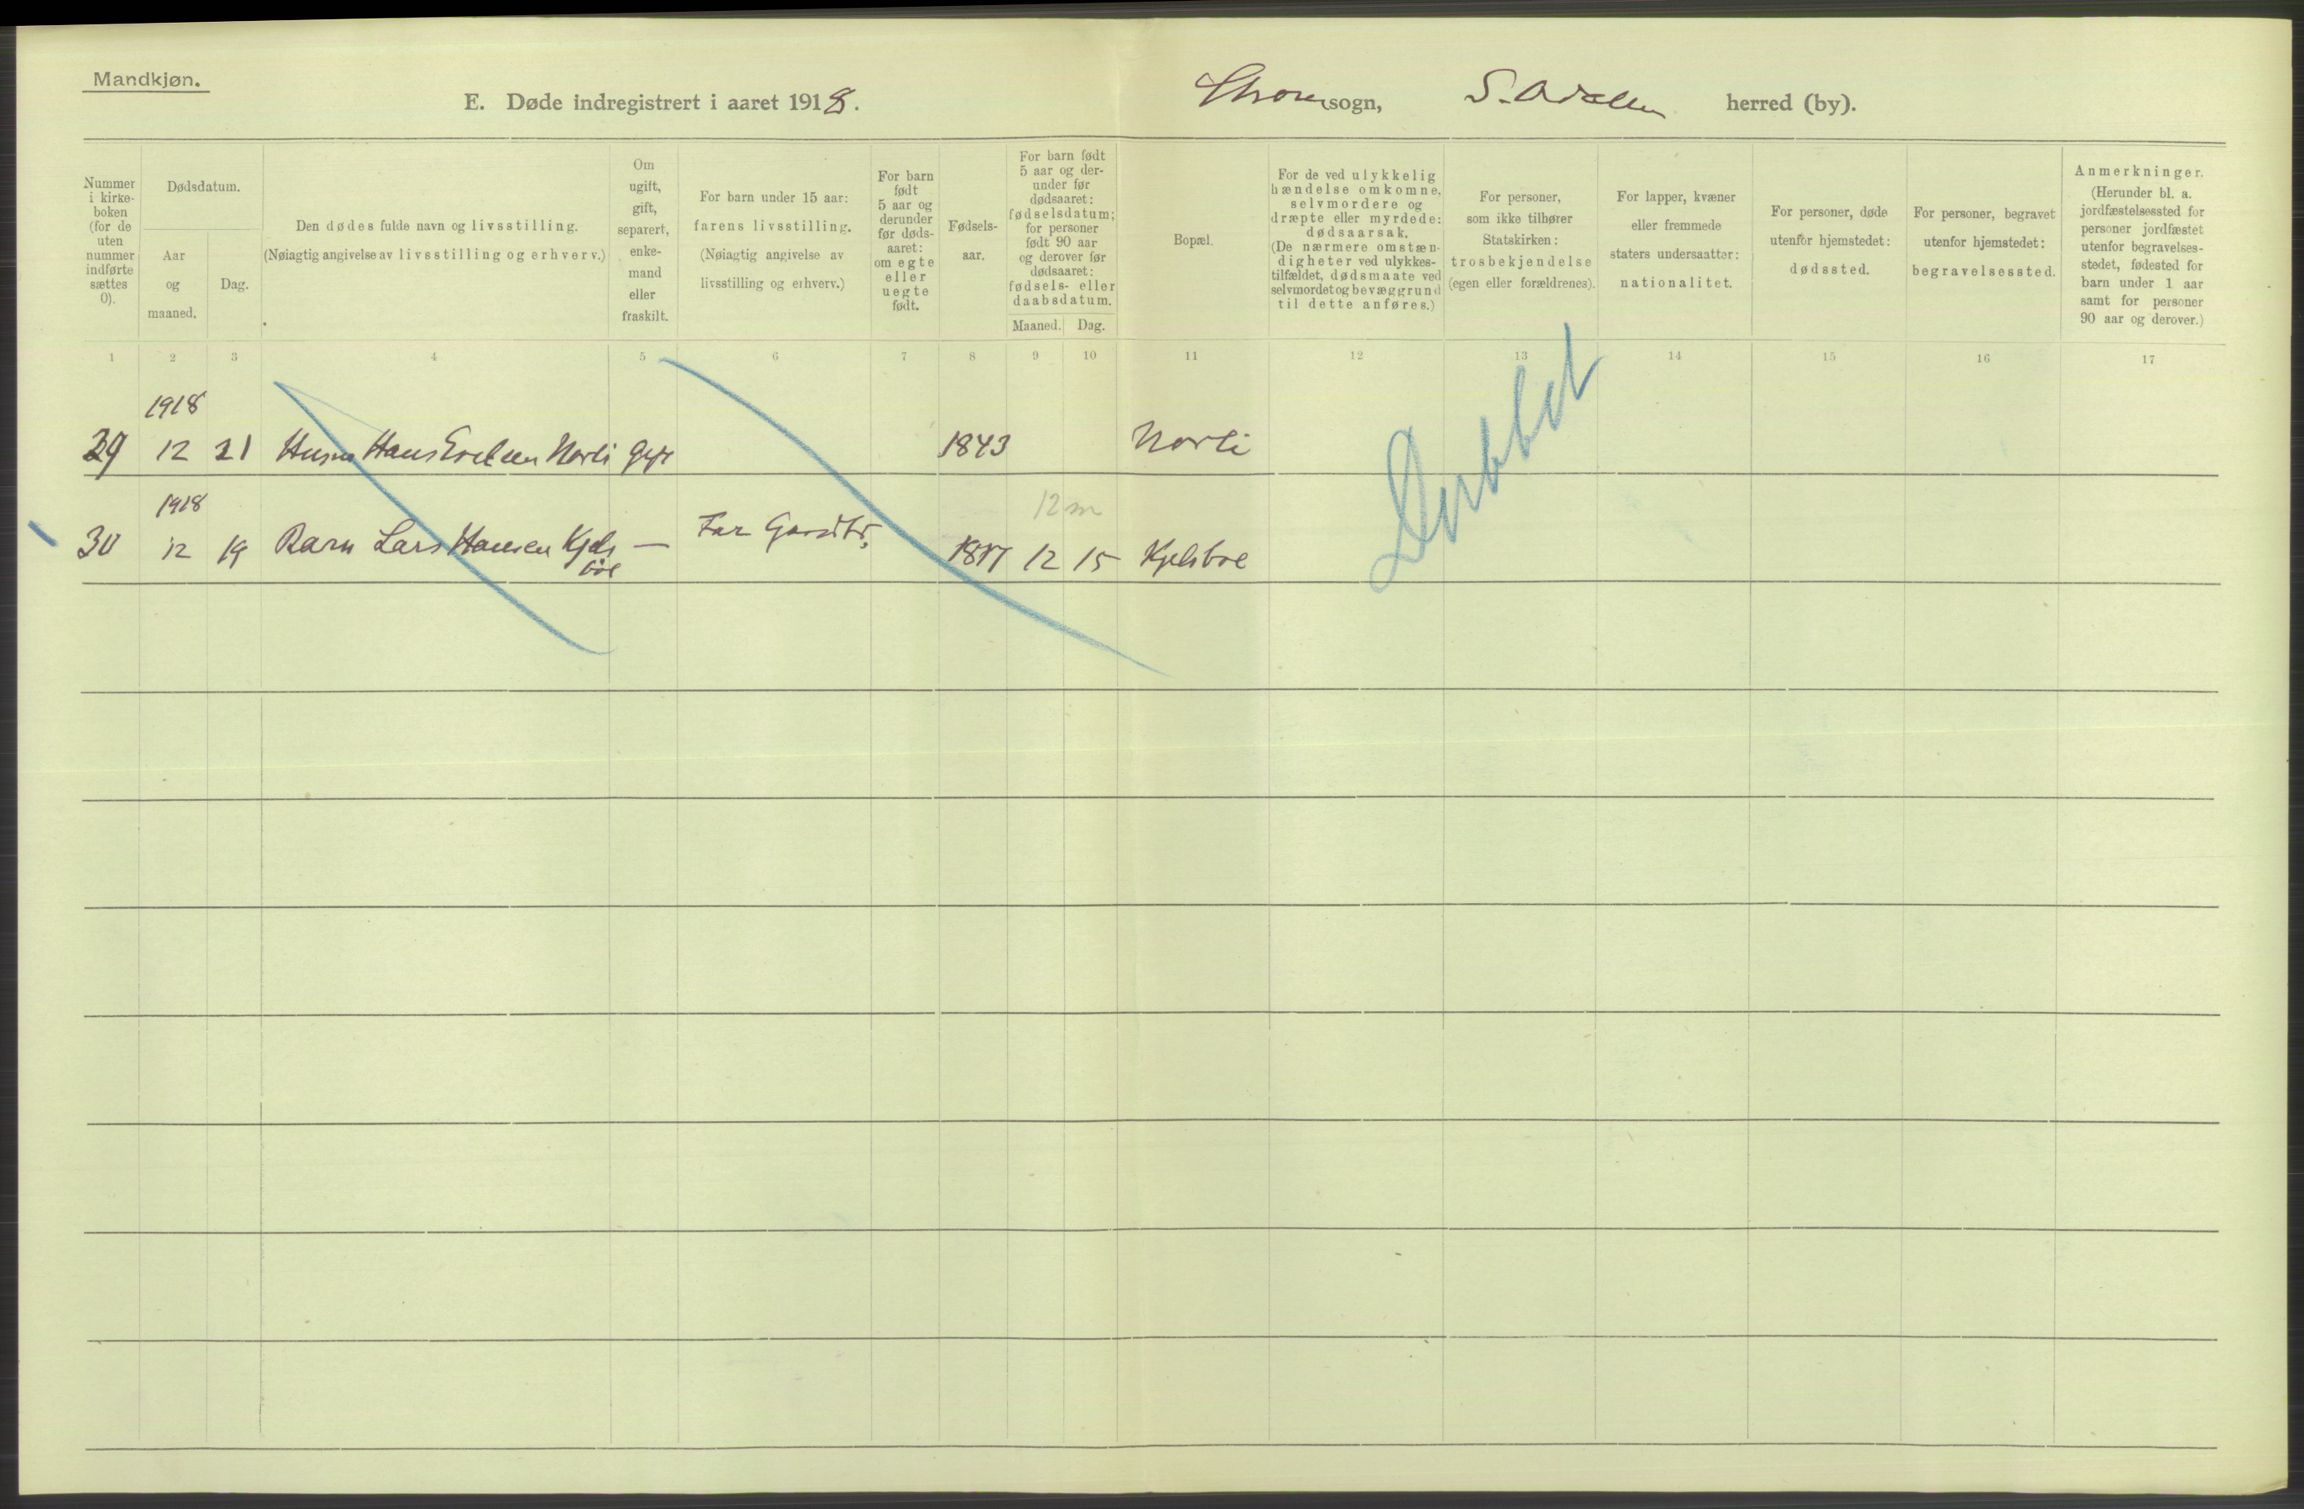 Mandkjøn.
E. Døde indregistrert i aaret 1918. Strøm sogn, S. Odalen herred (by).
Nummer
i kirke-
boken
(for de
uten
nummer
indførte
sættes
0).
Dødsdatum.
Aar
og
maaned.
Dag.
Den dødes fulde navn og livsstilling.
(Nøiagtig angivelse av livsstilling og erhverv.)
Om
ugift,
gift,
separert,
enke-
mand
eller
fraskilt.
For barn under 15 aar:
farens livsstilling.
(Nøiagtig angivelse av
livsstilling og erhverv.)
For barn
født
5 aar og
derunder
før døds-
aaret:
om egte
eller
uegte
født.
Fødsels-
aar.
For barn født
5 aar og der-
under før
dødsaaret:
fødselsdatum;
for personer
født 90 aar
og derover før
dødsaaret:
fødsels- eller
daabsdatum.
Maaned. Dag.
Bopæl.
For de ved ulykkelig
hændelse omkomne,
selvmordere og
dræpte eller myrdede:
dødsaarsak.
(De nærmere omstæn-
digheter ved ulykkes-
tilfældet, dødsmaate ved
selvmordet og bevæggrund
til dette anføres.)
For personer,
som ikke tilhører
Statskirken:
trosbekjendelse
(egen eller forældrenes).
For lapper, kvæner
eller fremmede
staters undersaatter:
nationalitet.
For personer, døde
utenfor hjemstedet:
dødssted.
For personer, begravet
utenfor hjemstedet:
begravelsessted.
Anmerkninger.
(Herunder bl. a.
jordfæstelsessted for
personer jordfæstet
utenfor begravelses-
stedet, fødested for
barn under 1 aar
samt for personer
90 aar og derover.)
1 2 3 4 5 6 7 8 9 10 11 12 13 14 15 16 17
1918
29 12 21 Hans Norli 1843 Norli
1918
12 m
30 12 19 Barn Lars Hansen Kjels — Far 12 15 Kjelsboe
boe
Dubbet